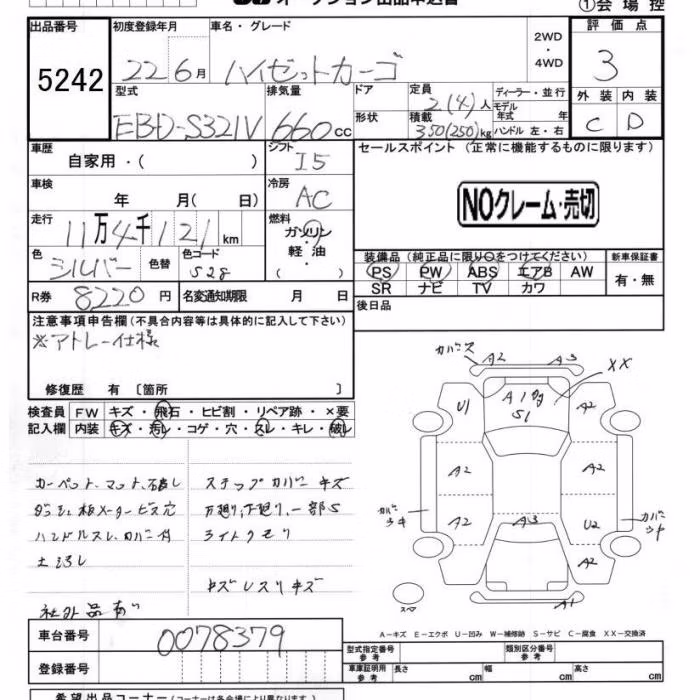 オークション出品申込書
①会場控
出品番号
5242
初度登録年月
22 6月
車名・グレード
ハイゼットカーゴ
2WD
・
4WD
評価点
3
型式
EBD-S321V
排気量
660 cc
ドア
形状
定員
2(4)人
積載
350(250)kg
ディーラー・並行
モデル
年式 年
ハンドル 左・右
外装 内装
C D
車歴
自家用・( )
シフト
I5
セールスポイント (正常に機能するものに限ります)
NOクレーム・売切
車検
年 月( 日)
冷房
AC
走行
11万4千121 km
燃料
ガソリン
・
軽・油
( )
色
シルバー
色替
色コード
S28
装備品(純正品に限り○をつけてください)
PS PW ABS エアB AW
SR ナビ TV カワ
新車保証書
有・無
R券
8220円
名変通知期限 月 日
後日品
注意事項申告欄(不具合内容等は具体的に記入して下さい)
※アトレー仕様
修復歴 有 〔箇所 〕
検査員
記入欄
FW キズ・飛石・ヒビ割・リペア跡・×要
内装 キズ・汚レ・コゲ・穴・スレ・キレ・破レ
カーペット、マット、破レ
ダッシュ板メータービス穴
ハンドルスレ、カバー付
社外品あり
ステップカバーキズ
下廻り、一部S
ライトクモリ
キズ
A2 A3
XX
A1
S1
U1
A2
A2
A2
A2
A3
U2
A2
A1
スペア
A-キズ E-エクボ U-凹み W-補修跡 S-サビ C-腐食 XX-交換済
車台番号
0078379
登録番号
型式指定番号
参考
類別区分番号
参考
車庫証明用
参考
長さ cm
幅 cm
高さ cm
希望出品コーナー(コーナーは各会場により異なります)